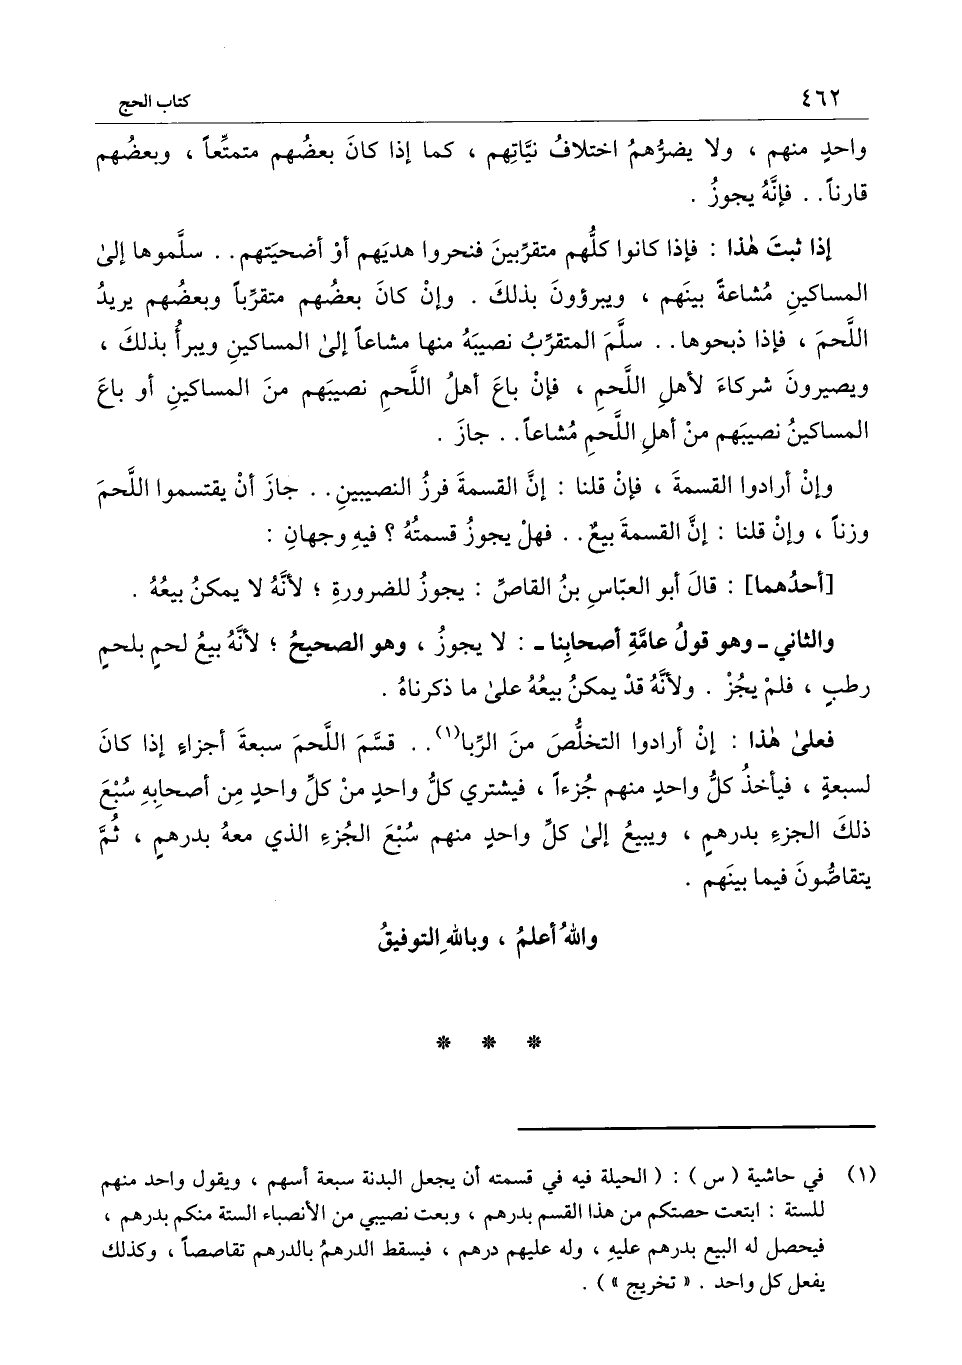 ٤٦٢
كتاب الحج
واحدٍ منهم ، ولا يضرُّهمُ اختلافُ نيَّاتِهم ، كما إذا كانَ بعضُهم متمتِّعاً ، وبعضُهم
قارناً . . فإنَّهُ يجوزُ .
إذا ثبتَ هٰذا : فإذا كانوا كلُّهم متقرِّبينَ فنحروا هديَهم أوْ أضحيَتهم . . سلَّموها إلىٰ
المساكينِ مُشاعةً بينَهم ، ويبرؤونَ بذلكَ . وإنْ كانَ بعضُهم متقرِّباً وبعضُهم يريدُ
اللَّحمَ ، فإذا ذبحوها . . سلَّمَ المتقرِّبُ نصيبَهُ منها مشاعاً إلىٰ المساكينِ ويبرأُ بذلكَ ،
ويصيرونَ شركاءَ لأهلِ اللَّحمِ ، فإنْ باعَ أهلُ اللَّحمِ نصيبَهم منَ المساكينِ أو باعَ
المساكينُ نصيبَهم منْ أهلِ اللَّحمِ مُشاعاً . . جازَ .
وإنْ أرادوا القسمةَ ، فإنْ قلنا : إنَّ القسمةَ فرزُ النصيبينِ . . جازَ أنْ يقتسموا اللَّحمَ
وزناً ، وإنْ قلنا : إنَّ القسمةَ بيعٌ . . فهلْ يجوزُ قسمتُهُ ؟ فيهِ وجهانِ :
[أحدُهما] : قالَ أبو العبّاسِ بنُ القاصِّ : يجوزُ للضرورةِ ؛ لأنَّهُ لا يمكنُ بيعُهُ .
والثاني ـ وهو قولُ عامَّةِ أصحابِنا ـ : لا يجوزُ ، وهو الصحيحُ ؛ لأنَّهُ بيعُ لحمٍ بلحمٍ
رطبٍ ، فلمْ يجُزْ . ولأنَّهُ قدْ يمكنُ بيعُهُ علىٰ ما ذكرناهُ .
فعلىٰ هٰذا : إنْ أرادوا التخلُّصَ منَ الرِّبا(١) . . قسَّمَ اللَّحمَ سبعةَ أجزاءٍ إذا كانَ
لسبعةٍ ، فيأخذُ كلُّ واحدٍ منهم جُزءاً ، فيشتري كلُّ واحدٍ منْ كلِّ واحدٍ مِن أصحابِهِ سُبْعَ
ذلكَ الجزءِ بدرهمٍ ، ويبيعُ إلىٰ كلِّ واحدٍ منهم سُبْعَ الجُزءِ الذي معهُ بدرهمٍ ، ثُمَّ
يتقاصُّونَ فيما بينَهم .
واللهُ أعلمُ ، وباللهِ التوفيقُ
* * *
(١) في حاشية ( س ) : ( الحيلة فيه في قسمته أن يجعل البدنة سبعة أسهم ، ويقول واحد منهم
للستة : ابتعت حصتكم من هذا القسم بدرهم ، وبعت نصيبي من الأنصباء الستة منكم بدرهم ،
فيحصل له البيع بدرهم عليهِ ، وله عليهم درهم ، فيسقط الدرهمُ بالدرهم تقاصصاً ، وكذلك
يفعل كل واحد . « تخريج » ) .